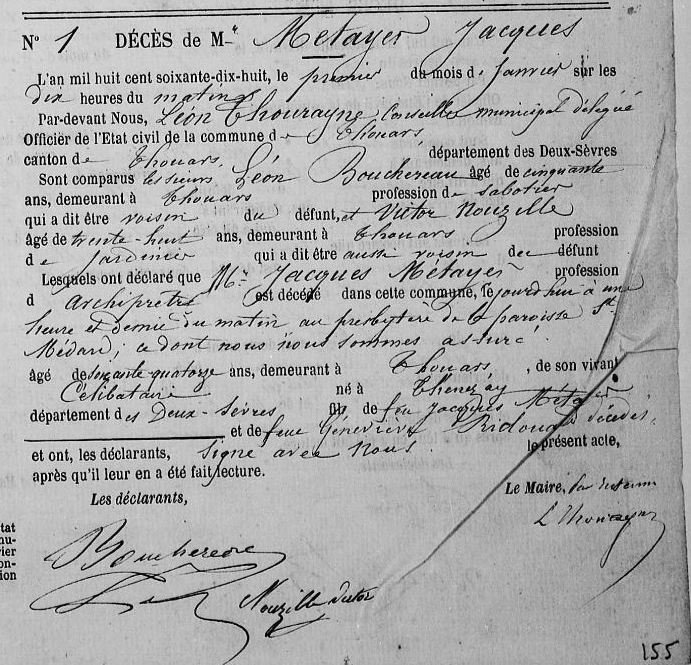 N° 1 DÉCÈS de Mr Métayer Jacques
L'an mil huit cent soixante-dix-huit, le premier du mois de Janvier sur les
dix heures du matin
Par-devant Nous, Léon Thourayne Conseiller municipal délégué
Officier de l'Etat civil de la commune de Thouars,
canton de Thouars, département des Deux-Sèvres
Sont comparus les sieurs Léon Bouchereau âgé de cinquante
ans, demeurant à Thouars profession de sabotier
qui a dit être voisin du défunt, et Victor Nouzille
âgé de trente-huit ans, demeurant à Thouars profession
de Jardinier qui a dit être aussi voisin de défunt
Lesquels ont déclaré que Mr Jacques Métayer profession
d'Archiprêtre est décédé dans cette commune, le jourd'hui à une
heure et demie du matin au presbytère de la paroisse St
Médard; ce dont nous nous sommes assuré.
âgé de soixante-quatorze ans, demeurant à Thouars, de son vivant
Célibataire né à Thenezay
département des Deux-Sèvres fils de feu Jacques Métayer
et de feue Geneviève Ridouard décédés.
et ont, les déclarants, signé avec nous le présent acte,
après qu'il leur en a été fait lecture.
Les déclarants, Le Maire, par interim
L Thourayne
Bouchereau
Nouzille victor
tat
nu-
vier
on-
ion
155